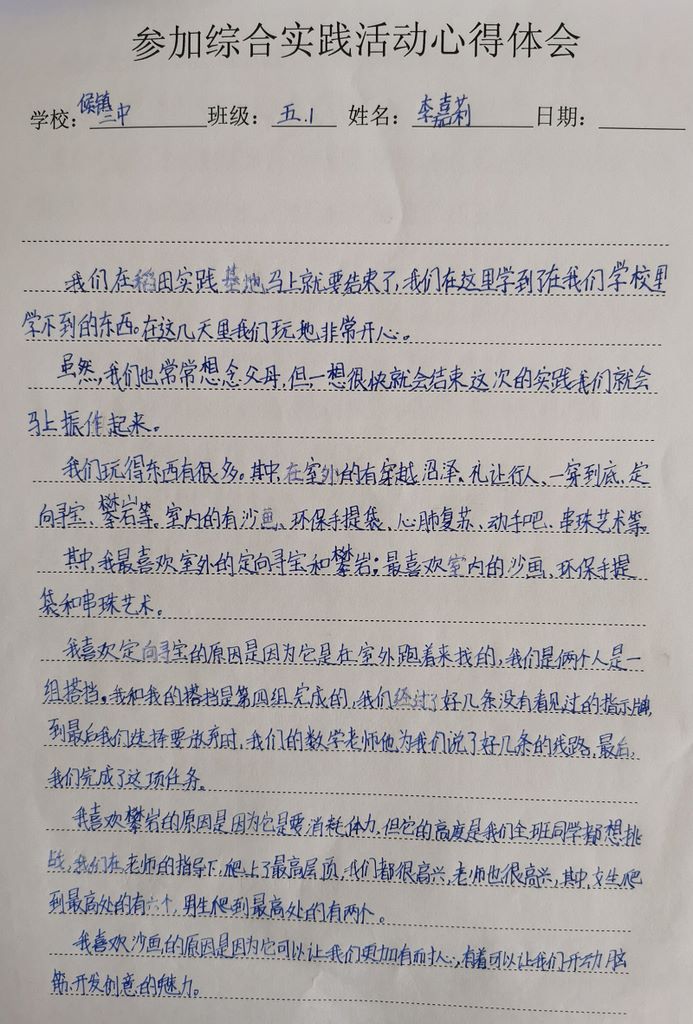 参加综合实践活动心得体会
学校：侯镇二中 班级：五.1 姓名：李嘉莉 日期：
我们在稻田实践基地马上就要结束了，我们在这里学到了在我们学校里
学不到的东西。在这几天里我们玩地非常开心。
虽然，我们也常常想念父母，但，一想很快就会结束这次的实践我们就会
马上振作起来。
我们玩得东西有很多。其中，在室外的有穿越沼泽、礼让行人、一穿到底、定
向寻宝、攀岩等。室内的有沙画、环保手提袋、心肺复苏、动手吧、串珠艺术等。
其中，我最喜欢室外的定向寻宝和攀岩。最喜欢室内的沙画、环保手提
袋和串珠艺术。
我喜欢定向寻宝的原因是因为它是在室外跑着来找的，我们是俩个人是一
组搭挡。我和我的搭挡是第四组完成的，我们经过了好几条没有看见过的指示牌，
到最后我们选择要放弃时，我们的数学老师他为我们说了好几条的线路，最后，
我们完成了这项任务。
我喜欢攀岩的原因是因为它是要消耗体力，但它的高度是我们全班同学都想挑
战，我们在老师的指导下，爬上了最高层顶，我们都很高兴，老师也很高兴，其中，女生爬
到最高处的有六个，男生爬到最高处的有两个。
我喜欢沙画的原因是因为它可以让我们更加有耐心，有着可以让我们开动脑
筋、开发创意的魅力。